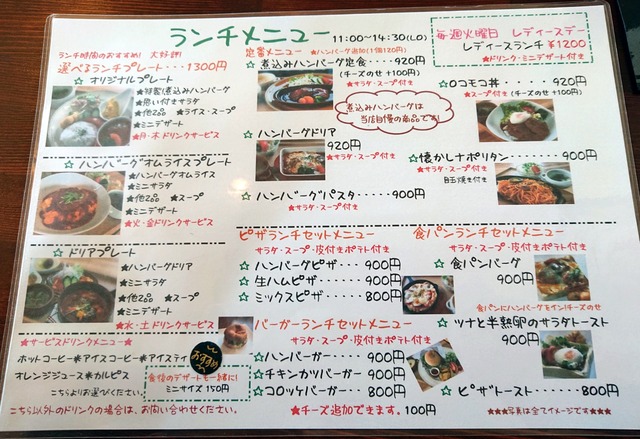 ランチメニュー 11:00～14:30(LO)
毎週火曜日 レディースデー
レディースランチ ¥1200
★ドリンク・ミニデザート付き
ランチ時間のおすすめ! 大好評!
選べるランチプレート・・・1300円
☆オリジナルプレート
★特製煮込みハンバーグ
★思い付きサラダ
★他2品 ★ライス・スープ
★ミニデザート
★月・木ドリンクサービス
☆ハンバーグオムライスプレート
★ハンバーグオムライス
★ミニサラダ
★他2品 ★スープ
★ミニデザート
★火・金ドリンクサービス
☆ドリアプレート
★ハンバーグドリア
★ミニサラダ
★他2品 ★スープ
★ミニデザート
★水・土ドリンクサービス
★サービスドリンクメニュー★
ホットコーヒー*アイスコーヒー*アイスティ
オレンジジュース*カルピス
こちらよりお選びください。
こちら以外のドリンクの場合は、お問い合わせください。
おすすめ
食後のデザートも一緒に!
ミニサイズ 150円
定番メニュー ★ハンバーグ追加(1個120円)
☆煮込みハンバーグ定食・・・920円
(チーズのせ +100円)
★サラダ・スープ付き
煮込みハンバーグは
当店自慢の商品です!
☆ハンバーグドリア
920円
★サラダ・スープ付き
☆ハンバーグパスタ・・・・・900円
★サラダ・スープ付き
☆ロコモコ丼・・・・920円
★スープ付き (チーズのせ+100円)
☆懐かしナポリタン・・・・・900円
★サラダ・スープ付き
目玉焼き付き
ピザランチセットメニュー
サラダ・スープ・皮付きポテト付き
☆ハンバーグピザ・・・900円
☆生ハムピザ・・・・900円
☆ミックスピザ・・・・800円
バーガーランチセットメニュー
サラダ・スープ・皮付きポテト付き
☆ハンバーガー・・・・900円
☆チキンカツバーガー・・・900円
☆コロッケバーガー・・・・800円
★チーズ追加できます。100円
食パンランチセットメニュー
サラダ・スープ・皮付きポテト付き
☆食パンバーグ
900円
食パンにハンバーグをイン!チーズのせ
☆ツナと半熟卵のサラダトースト
900円
☆ピザトースト・・・・・800円
★★★写真は全てイメージです★★★